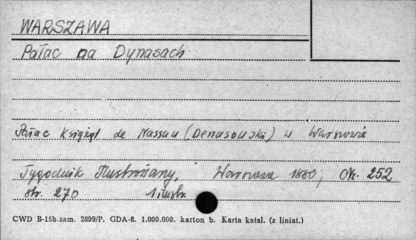 WARSZAWA
Pałac na Dynasach
Pałac Książąt de Nassau (Denasowski) w Warszawie
Tygodnik Illustrowany, Warszawa 1880, Nr. 252
str. 270 1 ilustr.
CWD B-15b. zam. 2899/P. GDA-8. 1.000.000. karton b. Karta katal. (z liniat.)